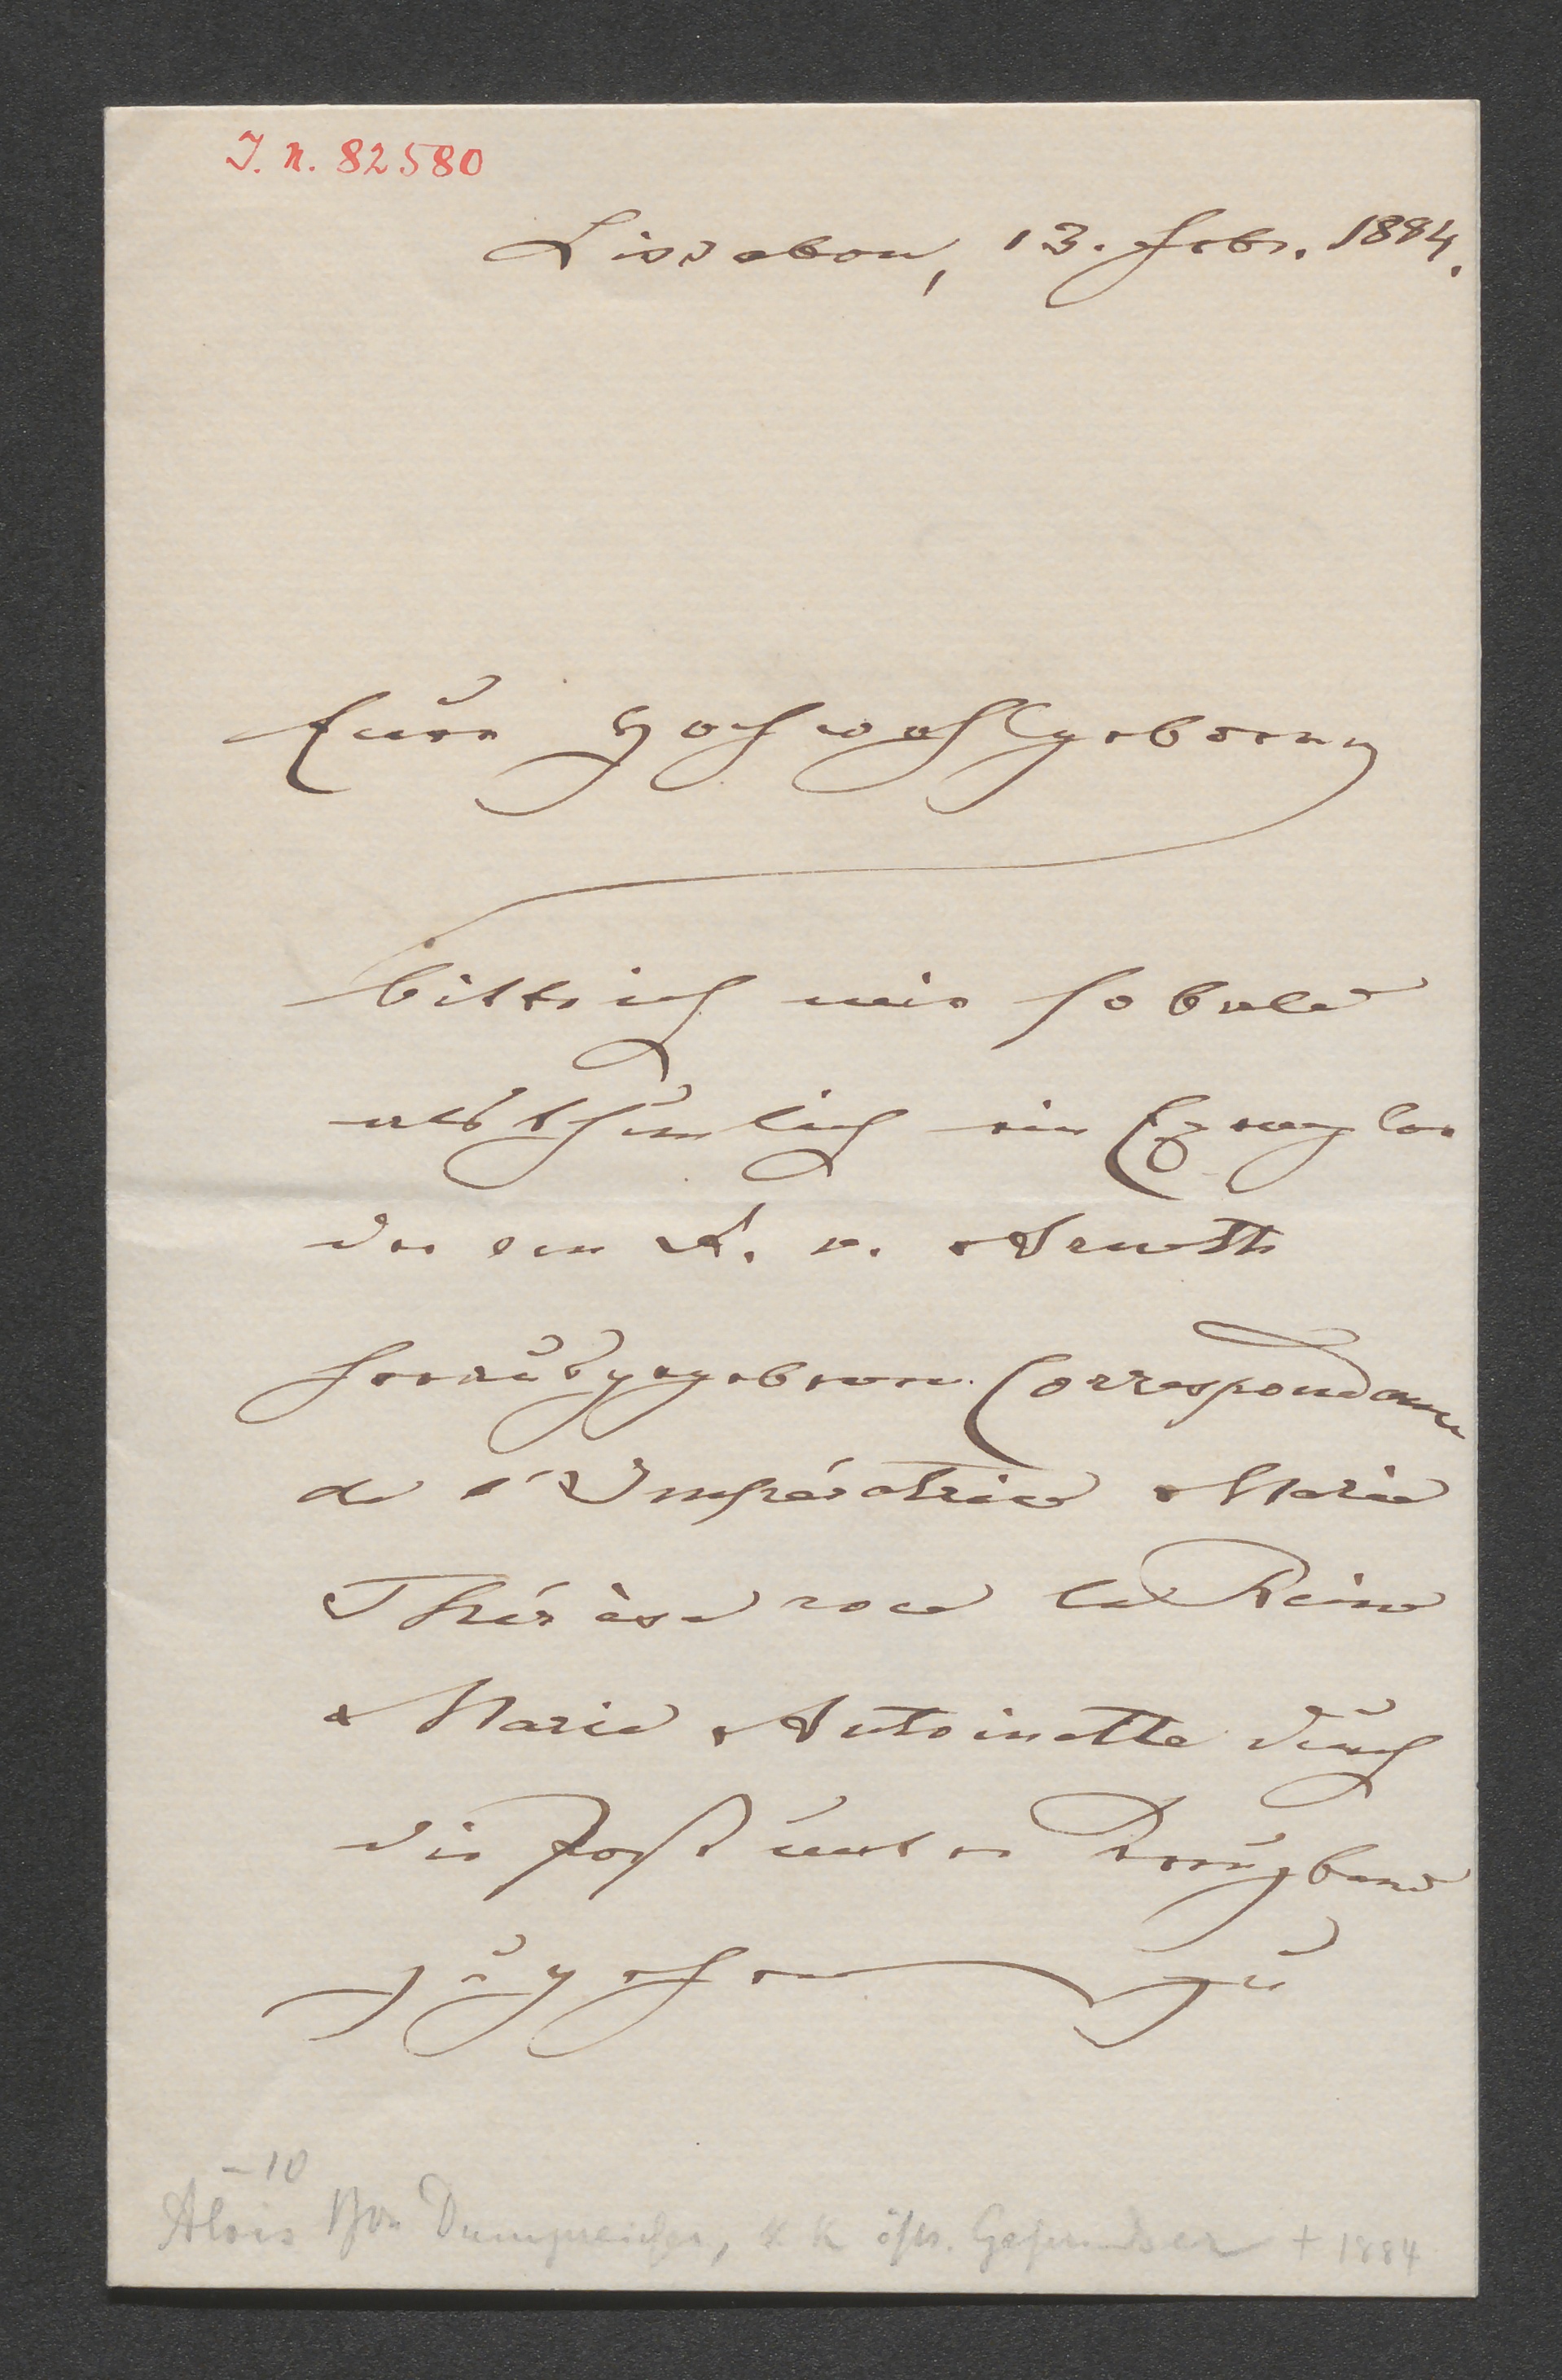 I. N. 82580
Lissabon, 13. Febr. 1884.
Eure Hochwohlgeboren
bitte ich mir sobald
als thunlich ein Exemplar
der von A. v. Arneth
herausgegebenen Correspondance
de l'Impératrice Marie
Thérèse avec la Reine
Marie Antoinette durch
die Post unter Kreuzband
zugehen zu
– 10
Alois Bon Dumreicher, k k östr. Gesandter + 1884